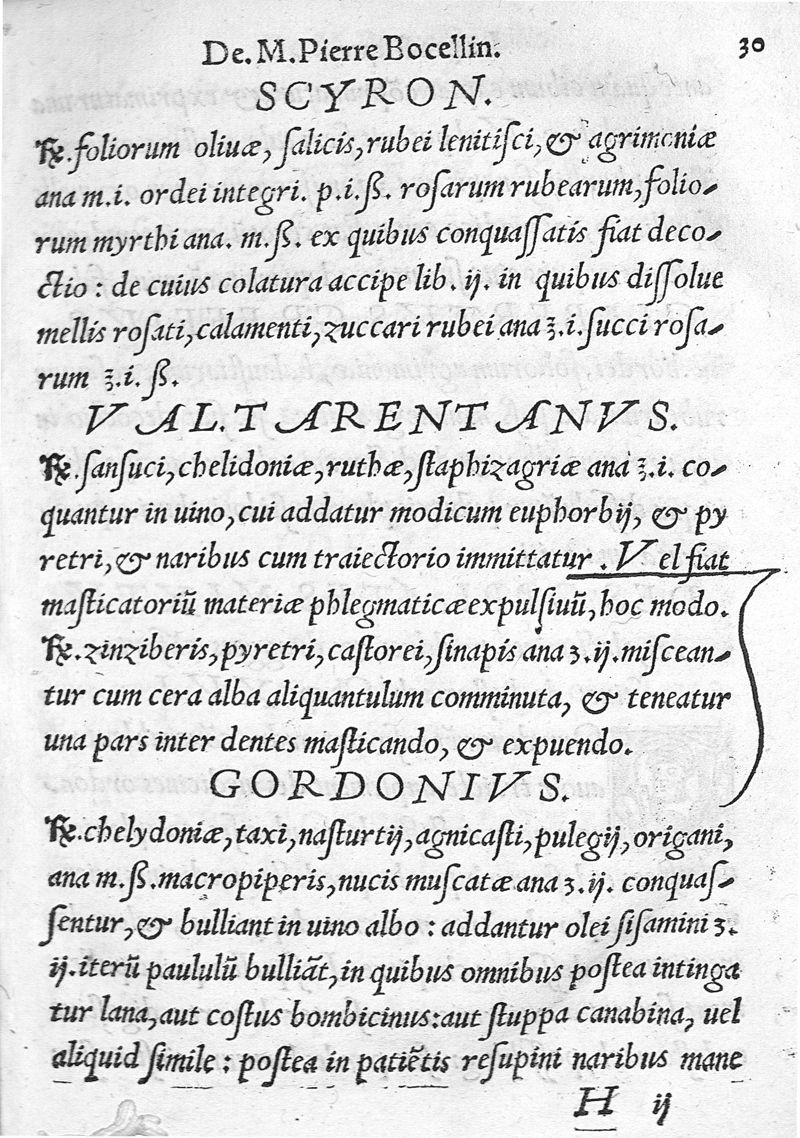 De. M. Pierre Bocellin. 30
SCYRON.
℞. foliorum oliuæ, ſalicis, rubei lenitiſci, & agrimoniæ
ana m.i. ordei integri. p.i.ß. roſarum rubearum, folio-
rum myrthi ana. m.ß. ex quibus conquaſſatis fiat deco-
ctio: de cuius colatura accipe lib. ij. in quibus diſſolue
mellis roſati, calamenti, zuccari rubei ana ℥.i. ſucci roſa-
rum ℥.i.ß.
VAL. TARENTANVS.
℞. ſanſuci, chelidoniæ, ruthæ, ſtaphizagriæ ana ℥.i. co-
quantur in uino, cui addatur modicum euphorbij, & py
retri, & naribus cum traiectorio immittatur. Vel fiat
maſticatoriũ materiæ phlegmaticæ expulſiuũ, hoc modo.
℞. zinziberis, pyretri, caſtorei, ſinapis ana ʒ.ij. miſcean-
tur cum cera alba aliquantulum comminuta, & teneatur
una pars inter dentes maſticando, & expuendo.
GORDONIVS.
℞. chelydoniæ, taxi, naſturtij, agnicaſti, pulegij, origani,
ana m.ß. macropiperis, nucis muſcatæ ana ʒ.ij. conquaſ-
ſentur, & bulliant in uino albo: addantur olei ſiſamini ʒ.
ij. iterũ paululũ bulliãt, in quibus omnibus poſtea intinga
tur lana, aut coſtus bombicinus: aut ſtuppa canabina, uel
aliquid ſimile: poſtea in patiẽtis reſupini naribus mane
H ij